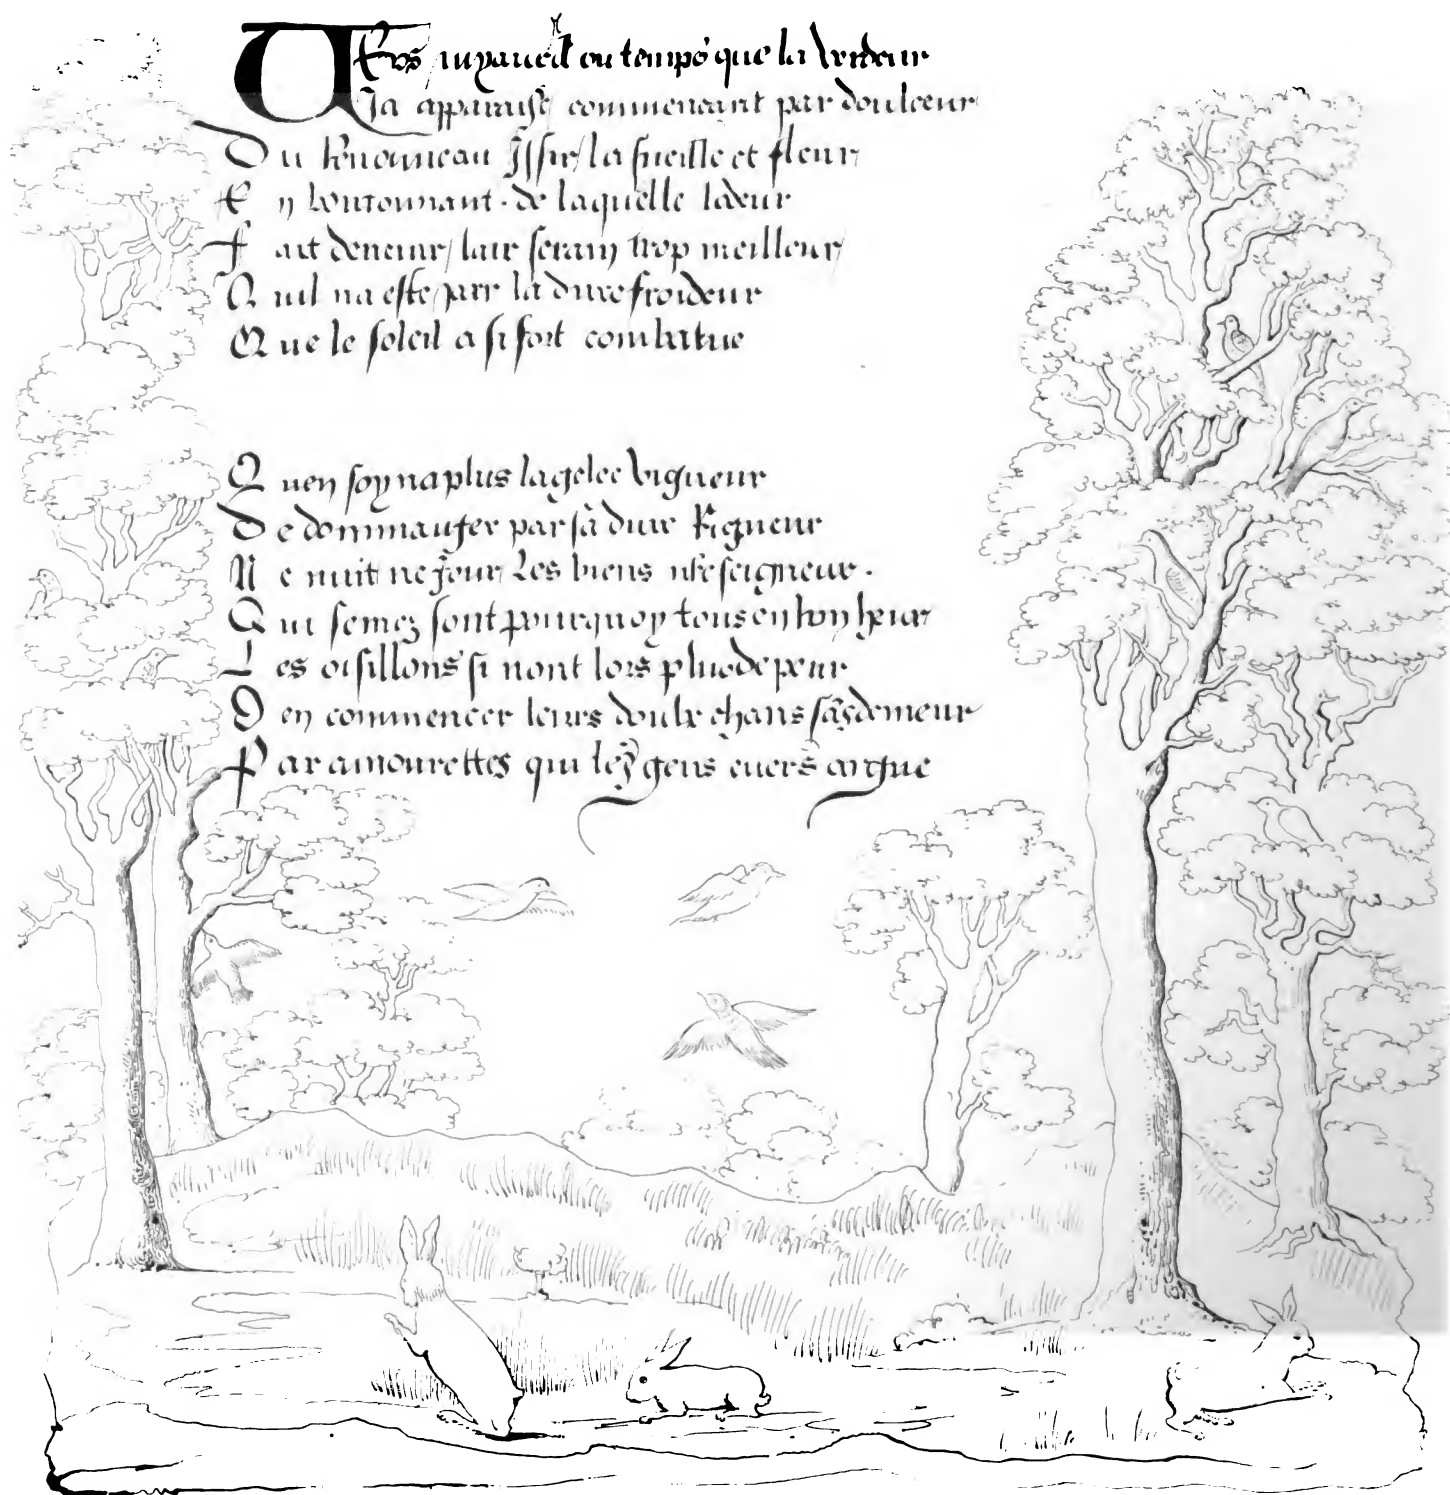 Vers my avril ou temps que la verdeur
Ja apparaist commencant par doulceur
Du Renouueau Jssir la fueille et fleur
En boutonnant de laquelle lodeur
Fait deuenir lair serain trop meilleur
Quil na este par la dure froideur
Que le soleil a si fort combatue
Quen soy na plus la gelee vigueur
De dommauger par sa dure Rigueur
Ne nuit ne Jour Les biens nre seigneur .
Qui semez sont pourquoy tous en bon heur
Les oisillons si nont lors plus de peur
Den commencer leurs doulx chans sas demeur
Par amourettes qui les gens argue